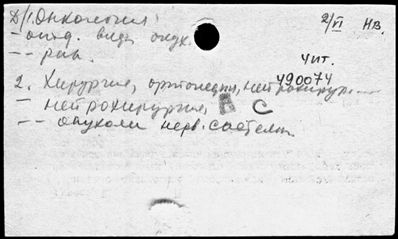 Д/1. Онкология
2/VI НВ.
- отд. виды опух.
-- рак.
чит.
490074
2. Хирургия, ортопедия, нейрохирург
- нейрохирургия
В С
-- опухоли нерв. системы